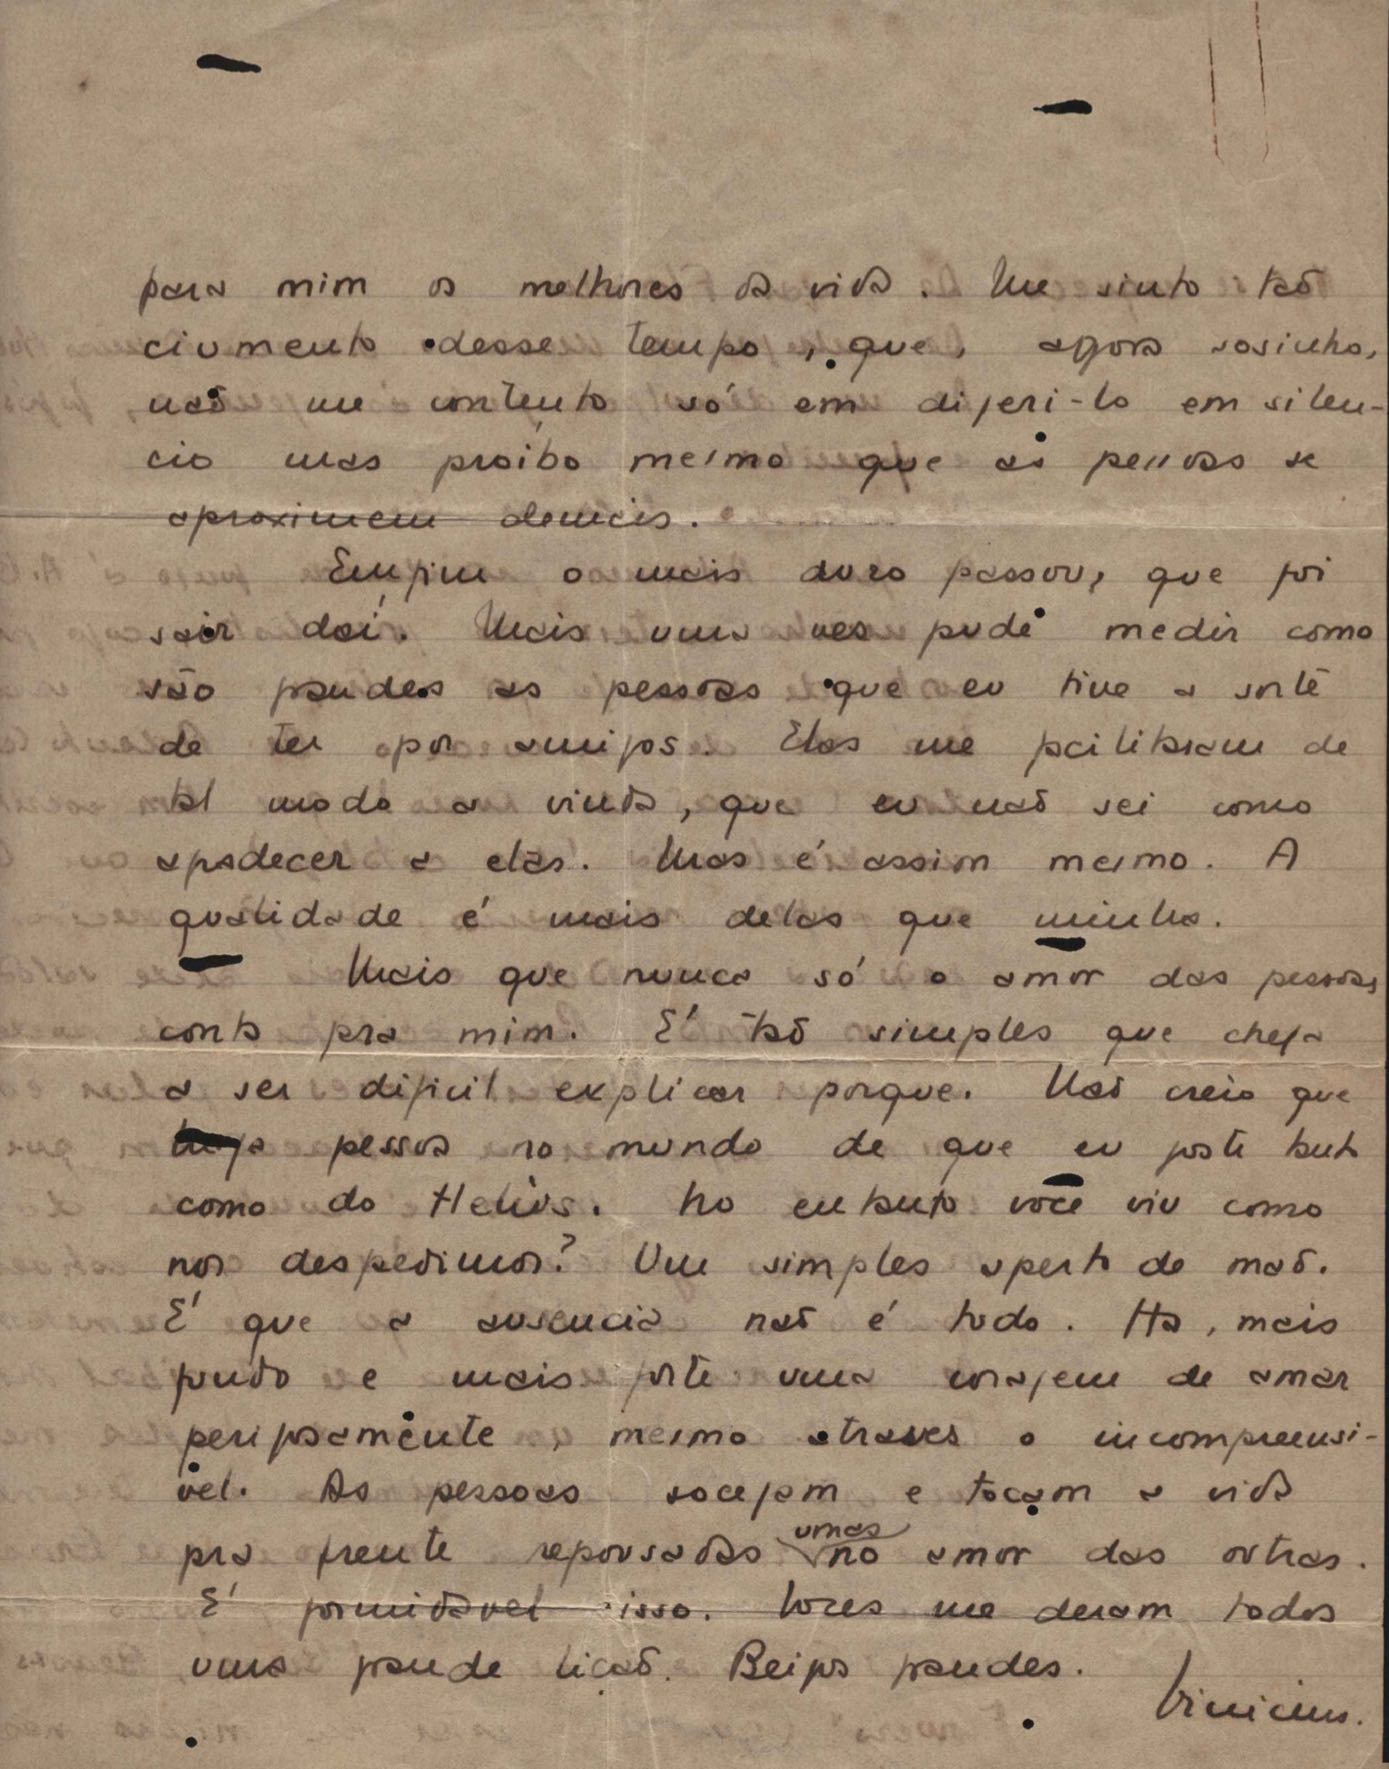 para mim os melhores da vida. Me sinto tão
ciumento desse tempo, que, agora sosinho,
não me contento só em digeri-lo em silen-
cio mas proíbo mesmo que as pessoas se
aproximem demais.
Emfim o mais duro passou, que foi
sair daí. Mais uma vez pude medir como
são grandes as pessoas que eu tive a sorte
de ter por amigos. Elas me facilitaram de
tal modo a vinda, que eu não sei como
agradecer a elas. Mas é assim mesmo. A
qualidade é mais delas que minha.
Mais que nunca só o amor das pessoas
conta pra mim. É tão simples que chega
a ser dificil explicar porque. Não creio que
haja pessoa no mundo de que eu goste tanto
como do Helius. No entanto você viu como
nos despedimos? Um simples aperto de mão.
É que a ausencia não é tudo. Ha, mais
fundo e mais forte uma coragem de amar
perigosamente, mesmo atraves o incompreensi-
vel. As pessoas socegam e tocam a vida
pra frente repousadas umas no amor das outras.
É formidavel isso. Voces me deram todos
uma grande lição. Beijos grandes.
Vinicius.